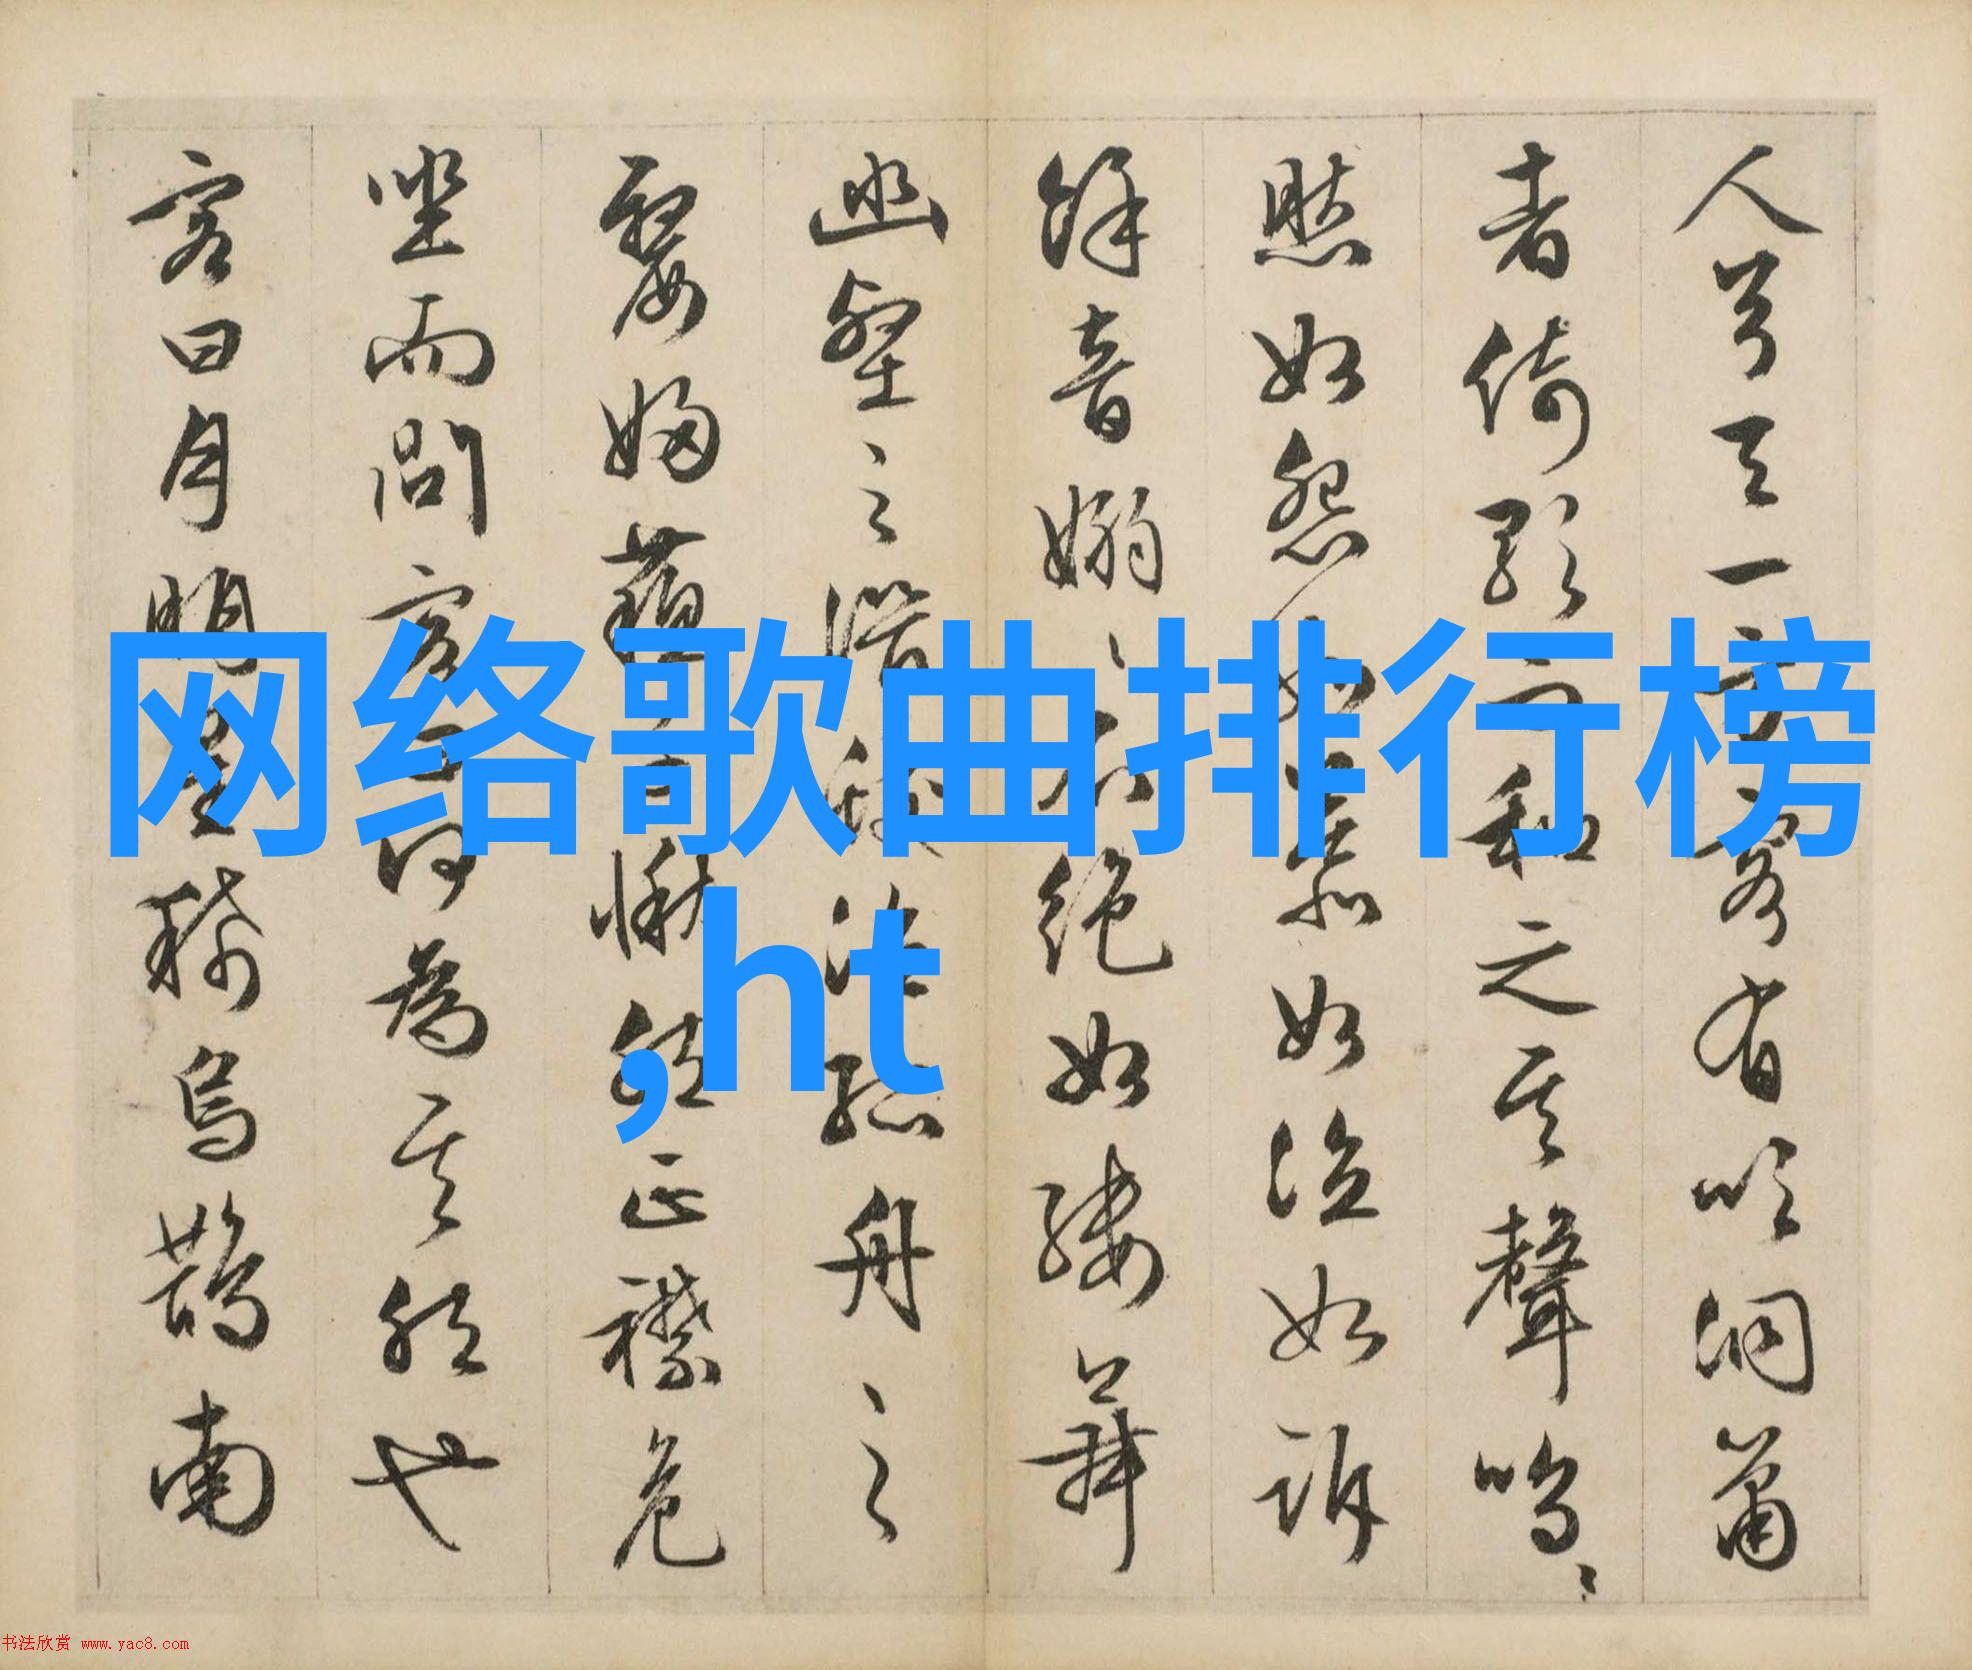 人兮天一方客有吹洞萧
者倚歌而和之其聲嗚〻
然如怨如慕如泣如訴
馀音嫋〻不绝如缕舞
幽壑之潜蛟泣孤舟之
嫠婦蘇子愀然正襟危
坐而問客曰何為其然也
客曰月明星稀烏鵲南
网络歌曲排行榜
,ht
书法欣赏 www.yac8.com